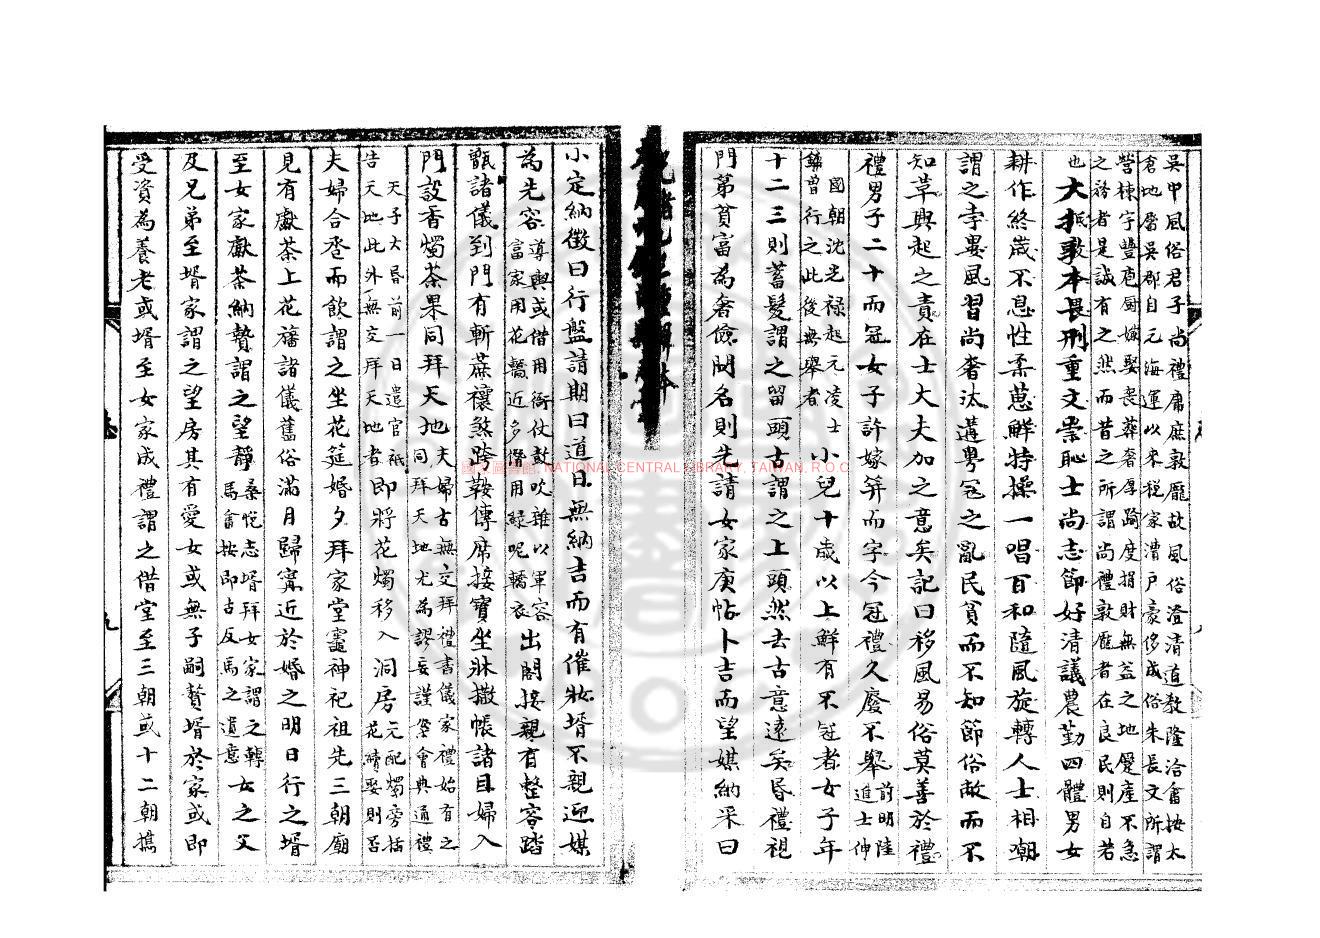 吳中風俗君子尚禮庸庶敦龐故風俗澄清道教隆洽畬按太
倉地屬吳郡自元海運以來税家漕戶豪侈成俗朱長文所謂
營棟宇豐庖厨嫁娶喪葬奢厚踰度捐財無益之地蹷產不急
之務者是誠有之然而昔之所謂尚禮敦龐者在良民則自若
也大抵敦本畏刑重文崇恥士尚志節好清議農勤四體男女
耕作終歲不息性柔蒽鮮特操一唱百和隨風旋轉人士相嘲
謂之李婁風習尚奢汰遘粤寇之亂民貧而不知節俗敝而不
知革興起之責在士大夫加之意矣記曰移風易俗莫善於禮
禮男子二十而冠女子許嫁笄而字今冠禮久廢不舉前明陸
進士伸
國朝沈光禄起元凌士
鑛曽行之此後無舉者小兒十歲以上鮮有不冠者女子年
十二三則蓄髮謂之留頭古謂之上頭然去古意遠矣昏禮視
門第貧富為奢儉問名則先請女家庚帖卜吉而望媒納采曰
小定納徵曰行盤請期曰道日無納吉而有催妝壻不親迎媒
為先容導輿或借用衙仗鼓吹雖以軍容
富家用花轎近多僭用緑呢轎衣出閣接親有整容踏
甑諸儀到門有斬蔴禳煞跨鞍傳席接寶坐牀撒帳諸目婦入
門設香燭茶果同拜天地夫婦古無交拜禮書儀家禮始有之
同拜天地尤為謬妄謹案會典通禮
天子大昏前一日遣官祇
告天地此外無交拜天地者即將花燭移入洞房元配燭旁括
花續娶則否
夫婦合卺而飲謂之坐花筵婚夕拜家堂竈神祀祖先三朝廟
見有獻茶上花簷諸儀舊俗滿月歸寗近於婚之明日行之壻
至女家獻茶納贄謂之望靜桑悅志壻拜女家謂之轉
馬畬按即古反馬之遺意女之父
及兄弟至壻家謂之望房其有愛女或無子嗣贅壻於家或即
受資為養老或壻至女家成禮謂之借堂至三朝或十二朝攜
國家圖書館, NATIONAL CENTRAL LIBRARY, TAIWAN, R O C